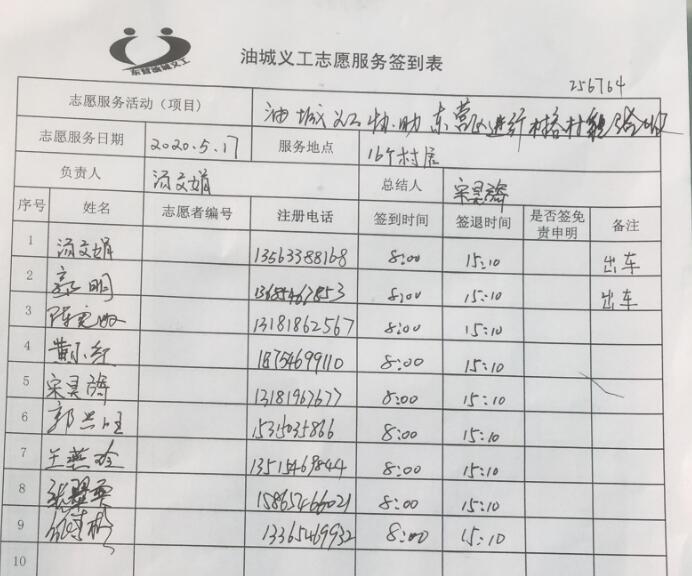 东营油城义工
油城义工志愿服务签到表
256764
志愿服务活动（项目） 油城义工协助东营区进行村容村
志愿服务日期 2020.5.17 服务地点 16个村居
负责人 汤文娟 总结人 宋昊
序号 姓名 志愿者编号 注册电话 签到时间 签退时间 是否签免责申明 备注
1 汤文娟 13563388168 8:00 15:10 出车
2 明 8:00 15:10 出车
3 陈 13181862567 8:00 15:10
4 黄 18754699110 8:00 15:10
5 宋昊 13181967677 8:00 15:10
6 郭兰旺 15315035866 8:00 15:10
7 王燕玲 13515469844 8:00 15:10
8 张翠 15865466021 8:00 15:10
9 13365469932 8:00 15:10
10